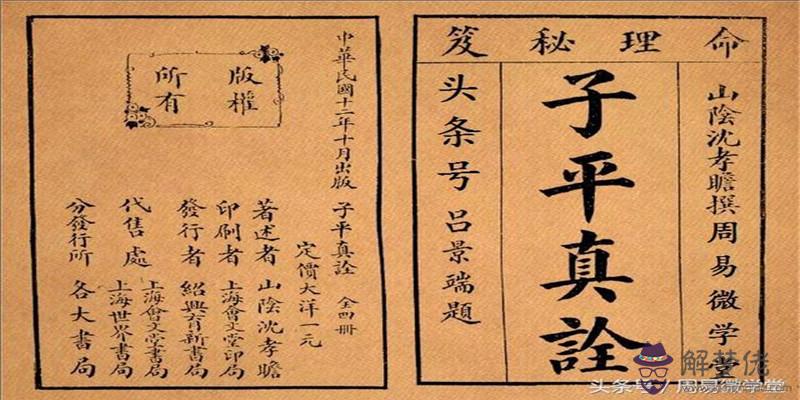 命理秘笈
山陰沈孝瞻撰周易微学堂
子平真詮
头条号吕景端題
中華民國十二年十月出版 子平真詮 全四冊
定價大洋一元
版權
所有
著述者 山陰沈孝瞻
印刷者 上海會文堂印局
發行者 紹興育新書局
代售處 上海會文堂書局
上海世界書局
分發行所 各大書局
解梦佬
头条号 / 周易微学堂